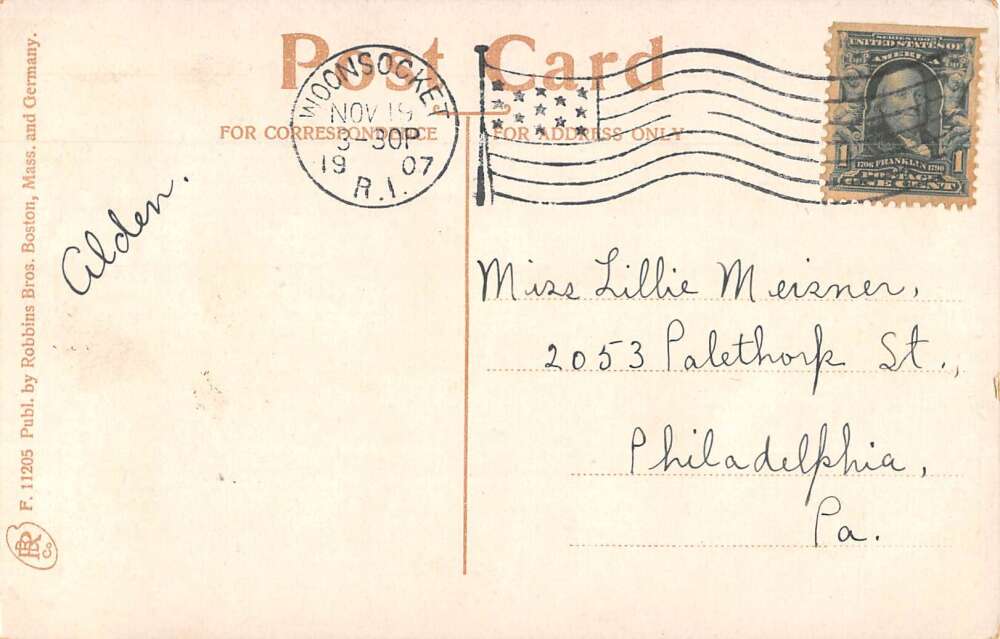 Post Card
FOR CORRESPONDENCE
FOR ADDRESS ONLY
WOONSOCKET
NOV 19
3-30P
19 07
R.I.
SERIES 1902
UNITED STATES OF
AMERICA
1 1706 FRANKLIN 1790 1
POSTAGE
ONE CENT
Alden.
Miss Lillie Meisner,
2053 Palethorp St.,
Philadelphia,
Pa.
F. 11205 Publ. by Robbins Bros. Boston, Mass. and Germany.
RB
Co